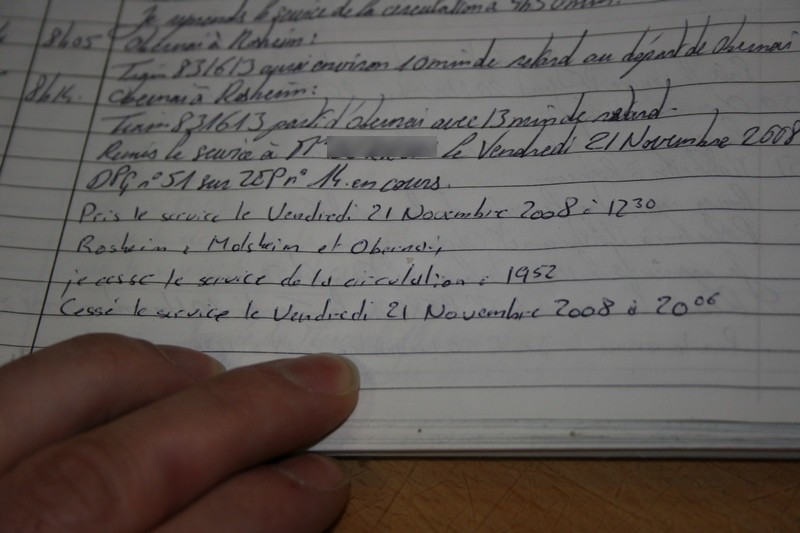 Je reprends le service de la circulation à
8h05 Obernai à Rosheim :
Train 831613 aura environ 10 min de retard au départ de Obernai
8h14. Obernai à Rosheim :
Train 831613 part d'Obernai avec 13 min de retard.
Remis le service à Mr le Vendredi 21 Novembre 2008
DPG n° 51 sur ZEP n° 14 en cours.
Pris le service le Vendredi 21 Novembre 2008 à 12 30
Rosheim à Molsheim et Obernai,
je cesse le service de la circulation à 19 52
Cessé le service le Vendredi 21 Novembre 2008 à 20 06